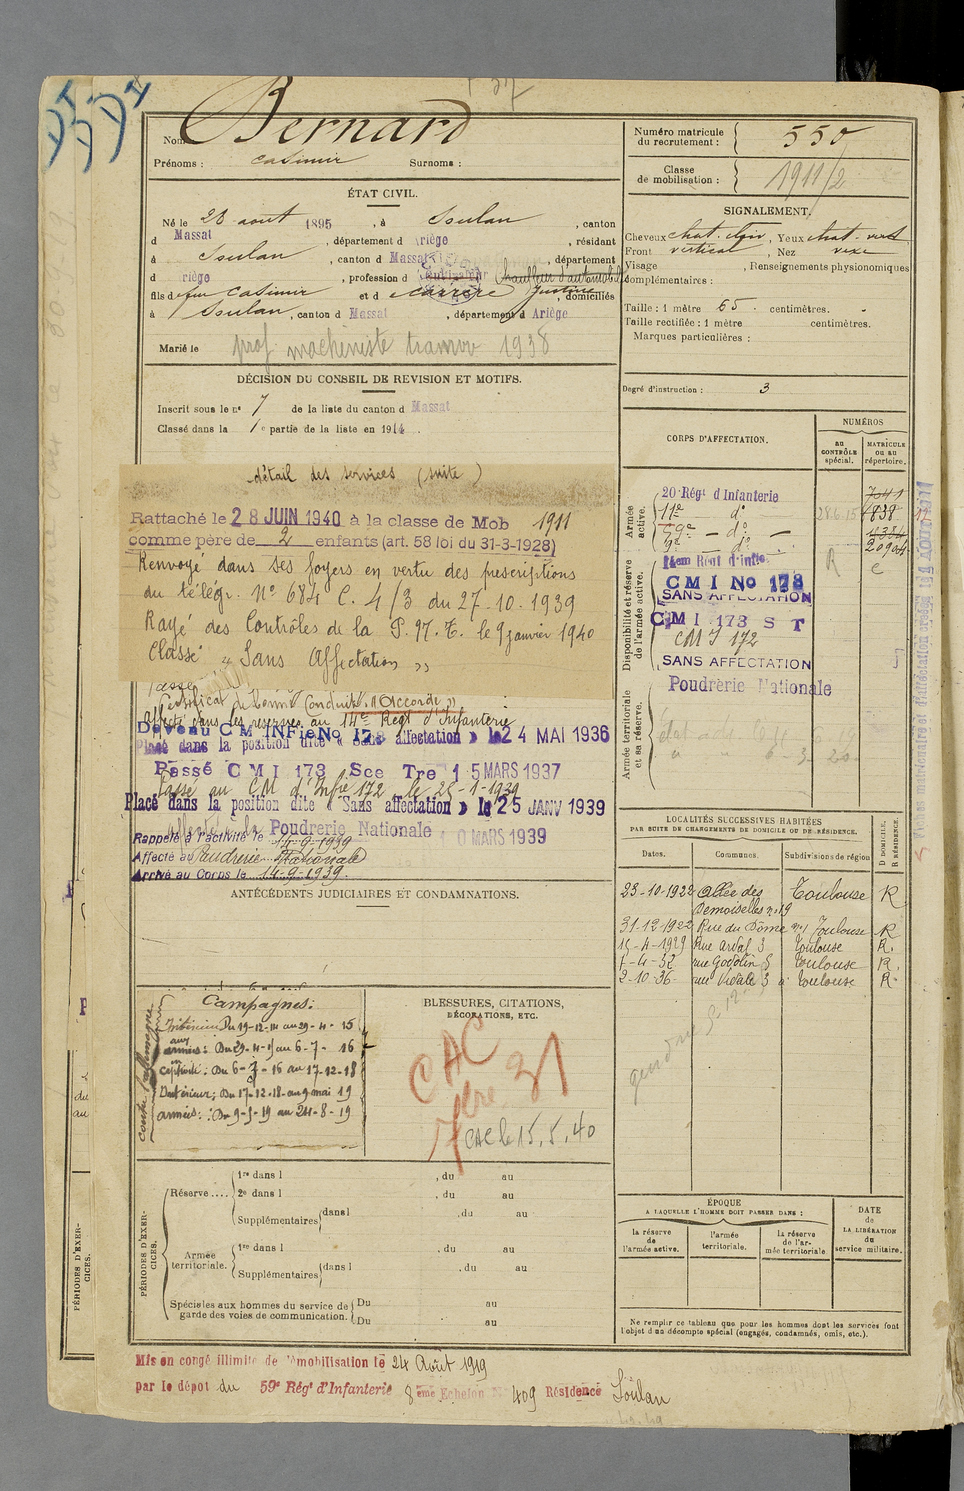 Nom Bernard
Prénoms : Casimir Surnoms :
Numéro matricule du recrutement : 550
Classe de mobilisation : 1911/2
ÉTAT CIVIL.
Né le 28 aout 1895, à Soulan, canton
d Massat, département d Ariège, résidant
à Soulan, canton d Massat, département
d riège, profession d Cultivateur Chauffeur d'automobiles
fils de feu Casimir et d Carrère Justine, domiciliés
à Soulan, canton d Massat, département d Ariège
Marié le
prof machiniste tramw 1938
SIGNALEMENT.
Cheveux chat. clair, Yeux chat. vert
Front vertical, Nez vexe
Visage , Renseignements physionomiques
complémentaires :
Taille : 1 mètre 65 centimètres.
Taille rectifiée : 1 mètre centimètres.
Marques particulières :
Degré d'instruction : 3
DÉCISION DU CONSEIL DE REVISION ET MOTIFS.
Inscrit sous le nº 7 de la liste du canton d Massat
Classé dans la 1e partie de la liste en 1914.
détail des services (suite)
Rattaché le 28 JUIN 1940 à la classe de Mob 1911
comme père de 2 enfants (art. 58 loi du 31-3-1928)
Renvoyé dans ses foyers en vertu des prescriptions
du télégr. Nº 684 C. 4/3 du 27-10-1939
Rayé des Contrôles de la P. N. T. le 9 janvier 1940
Classé "Sans Affectation"
Certificat de Bonne Conduite "Accordé"
Affecté dans les reserves au 14e Regt d'Infanterie
Devenu C M INFie No 173
Placé dans la position dite « Sans affectation » le 24 MAI 1936
Passé C M I 173 Sce Tre 15 MARS 1937
Passé au CM d'Infie 172 le 25-1-1939
Placé dans la position dite « Sans affectation » le 25 JANV 1939
Poudrerie Nationale 10 MARS 1939
Rappelé à l'activité le 14-9-1939
Affecté au Poudrerie Nationale
Arrivé au Corps le 14-9-1939.
CORPS D'AFFECTATION.
NUMÉROS
au CONTRÔLE spécial.
MATRICULE ou au répertoire.
Armée active.
20 Régt d'Infanterie 7041
11e dº 28.6.15 1838
59e dº 4384
9e dº 20904
Disponibilité et réserve de l'armée active.
14em Regt d'infie R C
C M I No 173
SANS AFFECTATION
C M I 173 S T
CMI 172
SANS AFFECTATION
Armée territoriale et sa réserve.
Poudrerie Nationale
ANTÉCÉDENTS JUDICIAIRES ET CONDAMNATIONS.
LOCALITÉS SUCCESSIVES HABITÉES
PAR SUITE DE CHANGEMENTS DE DOMICILE OU DE RÉSIDENCE.
Dates. Communes. Subdivisions de région
D DOMICILE. R RÉSIDENCE.
23-10-1922 Allée des Demoiselles nº 19 Toulouse R
31-12-1922 Rue du Dôme nº 1 Toulouse R
15-4-1929 Rue Arval 3 Toulouse R.
1-4-32 rue Godolin 5 Toulouse R.
2-10-36 rue Vidale 3 à Toulouse R
Campagnes:
contre l'Allemagne
Intérieur Du 19-12-14 au 29-4-15
aux armées : Du 29-4-15 au 6-7-16
en captivité : Du 6-7-16 au 17-12-18
Intérieur ; Du 17-12-18 au 9 mai 19
armées : Du 9-5-19 au 24-8-19
BLESSURES, CITATIONS, DÉCORATIONS, ETC.
CAC
37
CAC le 15.5.40
PÉRIODES D'EXERCICES.
Réserve .... 1re dans l , du au
2e dans l , du au
Supplémentaires dans l , du au
Armée territoriale. 1re dans l , du au
Supplémentaires dans l , du au
Spéciales aux hommes du service de garde des voies de communication. Du au
Du au
ÉPOQUE
A LAQUELLE L'HOMME DOIT PASSER DANS :
la réserve de l'armée active.
l'armée territoriale.
la réserve de l'armée territoriale
DATE de LA LIBÉRATION du service militaire.
Ne remplir ce tableau que pour les hommes dont les services font l'objet d'un décompte spécial (engagés, condamnés, omis, etc.).
Mis en congé illimité de démobilisation le 24 Août 1919
par le dépôt du 59e Régt d'Infanterie 8ème Echelon Nº 409 Résidence Soulan
du
au
PÉRIODES D'EXERCICES.